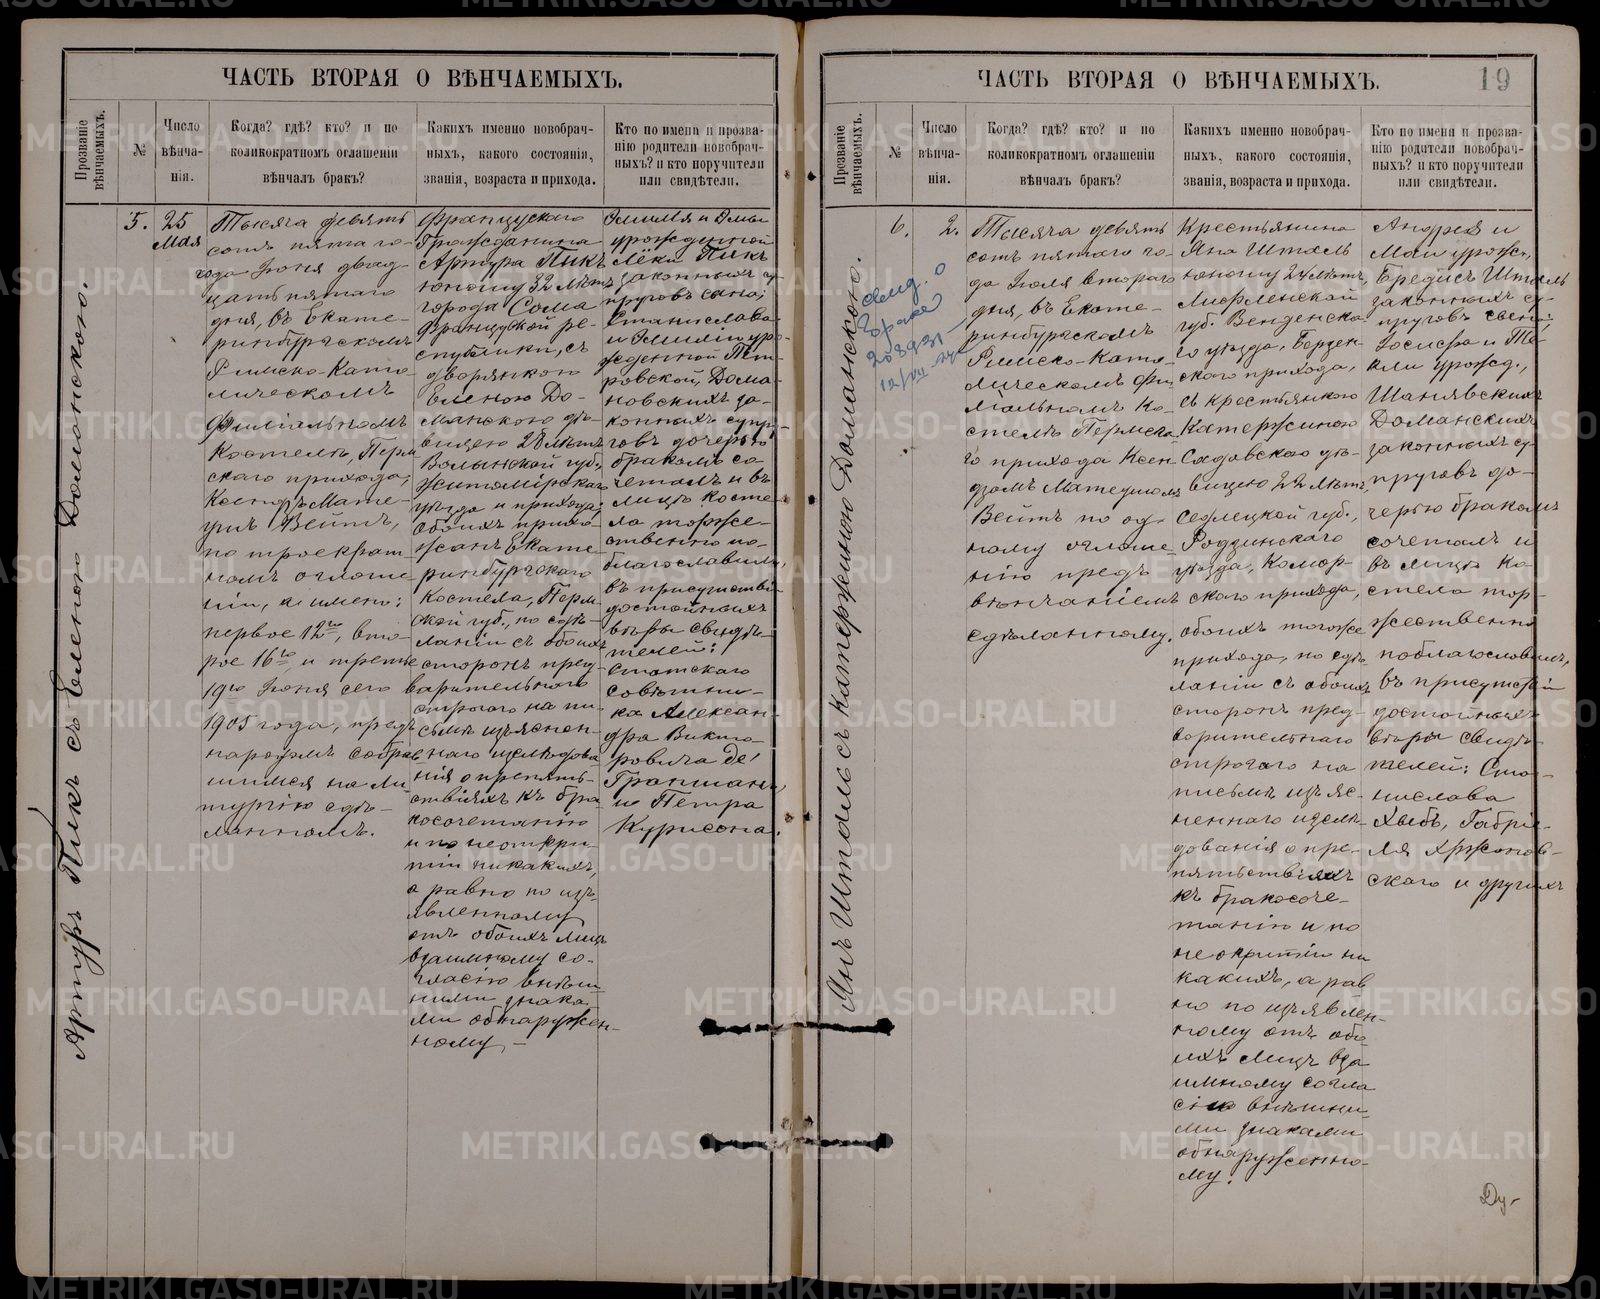 ЧАСТЬ ВТОРАЯ О ВѢНЧАЕМЫХЪ.
Прозваніе вѣнчаемыхъ.
№
Число вѣнча-нія.
Когда? гдѣ? кто? и по
коликократномъ оглашеніи
вѣнчалъ бракъ?
Какихъ именно новобрач-
ныхъ, какого состоянія,
званія, возраста и прихода.
Кто по имени и прозва-
нію родители новобрач-
ныхъ? и кто поручители
или свидѣтели.
Артуръ Пикъ съ Еленою Доманскою.
5.
25
мая
Тысяча девять
сотъ пята го-
года Іюня двад-
цать пятаго
дня, въ Екате-
ринбургскомъ
Римско-Като-
лическомъ
Филіальномъ
Костелѣ, Перм
скаго прихода,
Ксендзъ Мате-
ушъ Вейтъ,
по троекрат
номъ оглаше-
ніи, а именно:
первое 12го, вто-
рое 16го и третье
19го Іюня сего
1905 года, предъ
народомъ собрав
шимся на Ли
тургію сдѣ-
ланномъ.
Французскаго
Гражданина
Артура Пикъ
юношу 32 лѣтъ
города Сома
Французской ре-
спублики, съ
дворянкою
Еленою До-
манскою дѣ-
вицею 28 лѣтъ
Волынской губ.,
Житомірскаго
уѣзда и прихода,
обоихъ прихо-
жанъ Екате-
ринбургскаго
Костела, Перм-
ской губ., по сдѣ-
ланіи съ обоихъ
сторонъ пред-
варительнаго
строгаго на пи-
сьмѣ изъяснен-
наго изслѣдова
нія о препят-
ствіяхъ къ бра
косочетанію
и по неоткры-
тіи никакихъ,
а равно по изъ-
явленному
отъ обоихъ лицъ
взаимному со-
гласію внѣш-
ними знака
ми обнаружен-
ному,—
Эмиля и Эммы
урожденной
Леки Пикъ
законныхъ су-
пруговъ сына;
Станислава
и Эмиліи уро-
жденной Пет-
ровской, Дома-
новскихъ за-
конныхъ супру-
говъ дочерью
бракомъ со-
четалъ и въ
лицѣ косте-
ла торже-
ственно по-
благославилъ,
въ присутствіи
достойныхъ
вѣры свидѣ-
телей:
Статскаго
совѣтни-
ка Алексан-
дра Викто-
ровича де
и Петра
Курисона.
ЧАСТЬ ВТОРАЯ О ВѢНЧАЕМЫХЪ.
19
Прозваніе вѣнчаемыхъ.
№
Число вѣнча-нія.
Когда? гдѣ? кто? и по
коликократномъ оглашеніи
вѣнчалъ бракъ?
Какихъ именно новобрач-
ныхъ, какого состоянія,
званія, возраста и прихода.
Кто по имени и прозва-
нію родители новобрач-
ныхъ? и кто поручители
или свидѣтели.
Янъ Шталь съ Катержиною Доманскою.
свид. о
браке
12/VII
6.
2.
Тысяча девять
сотъ пятаго го-
да Іюля втораго
дня, въ Екате-
ринбургскомъ
Римско-Като-
лическомъ Фи-
ліальномъ Ко-
стелѣ Пермска-
го прихода Ксен
дзомъ Матеушомъ
Вейтъ по од-
ному оглаше-
нію предъ
вѣнчаніемъ
сдѣланному.
Крестьянина
Яна Шталь
юношу 24 лѣтъ,
Лифлянской
губ. Венденска-
го уѣзда, Берзен-
скаго прихода,
съ крестьянкою
Катержиною
Садовскою дѣ-
вицею 22 лѣтъ,
Седлецкой губ.,
Родзинскаго
уѣзда, Комор-
скаго прихода,
обоихъ тогоже
прихода, по сдѣ-
ланіи съ обоихъ
сторонъ пред-
варительнаго
строгаго на
письмѣ изъяс-
неннаго изслѣ-
дованія о пре-
пятствіяхъ
къ бракосоче-
танію и по
неокрытіи ни
какихъ, а рав
но по изъявлен-
ному отъ обо-
ихъ лицъ вза
имному согла
сію внѣшни-
ми знаками
обнаруженно-
му.
Андрея и
Маи урожд.,
Бредисъ Шталь
законныхъ су-
пруговъ сына;
Іосифа и Те-
кли урожд.,
Шанявскихъ
Доманскихъ
законныхъ су-
пруговъ до-
черью бракомъ
сочеталъ и
въ лицѣ Ко-
стела тор-
жественно
поблагословилъ,
въ присутствіи
достойныхъ
вѣры свидѣ-
телей: Ста-
нислава
Хвебъ, Габріе-
ля Хржонов-
скаго и другихъ
Ду-
METRIKI.GASO-URAL.RU